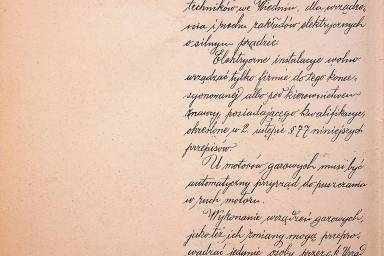 techników we Wiedniu, dla urządze-
nia i ruchu zakładów elektrycznych
o silnym prądzie.
Elektryczne instalacye wolno
urządzać tylko firmie do tego konce-
syonowanej albo pod kierownictwem
znawcy, posiadającego kwalifikacye,
określone w 2. ustępie § 77 niniejszych
przepisów.
U motorów gazowych musi być
automatyczny przyrząd do puszczania
w ruch motoru.
Wykonanie urządzeń gazowych,
jakoteż ich zmiany mogą przepro-
wadzać jedynie osoby przez k. Urząd